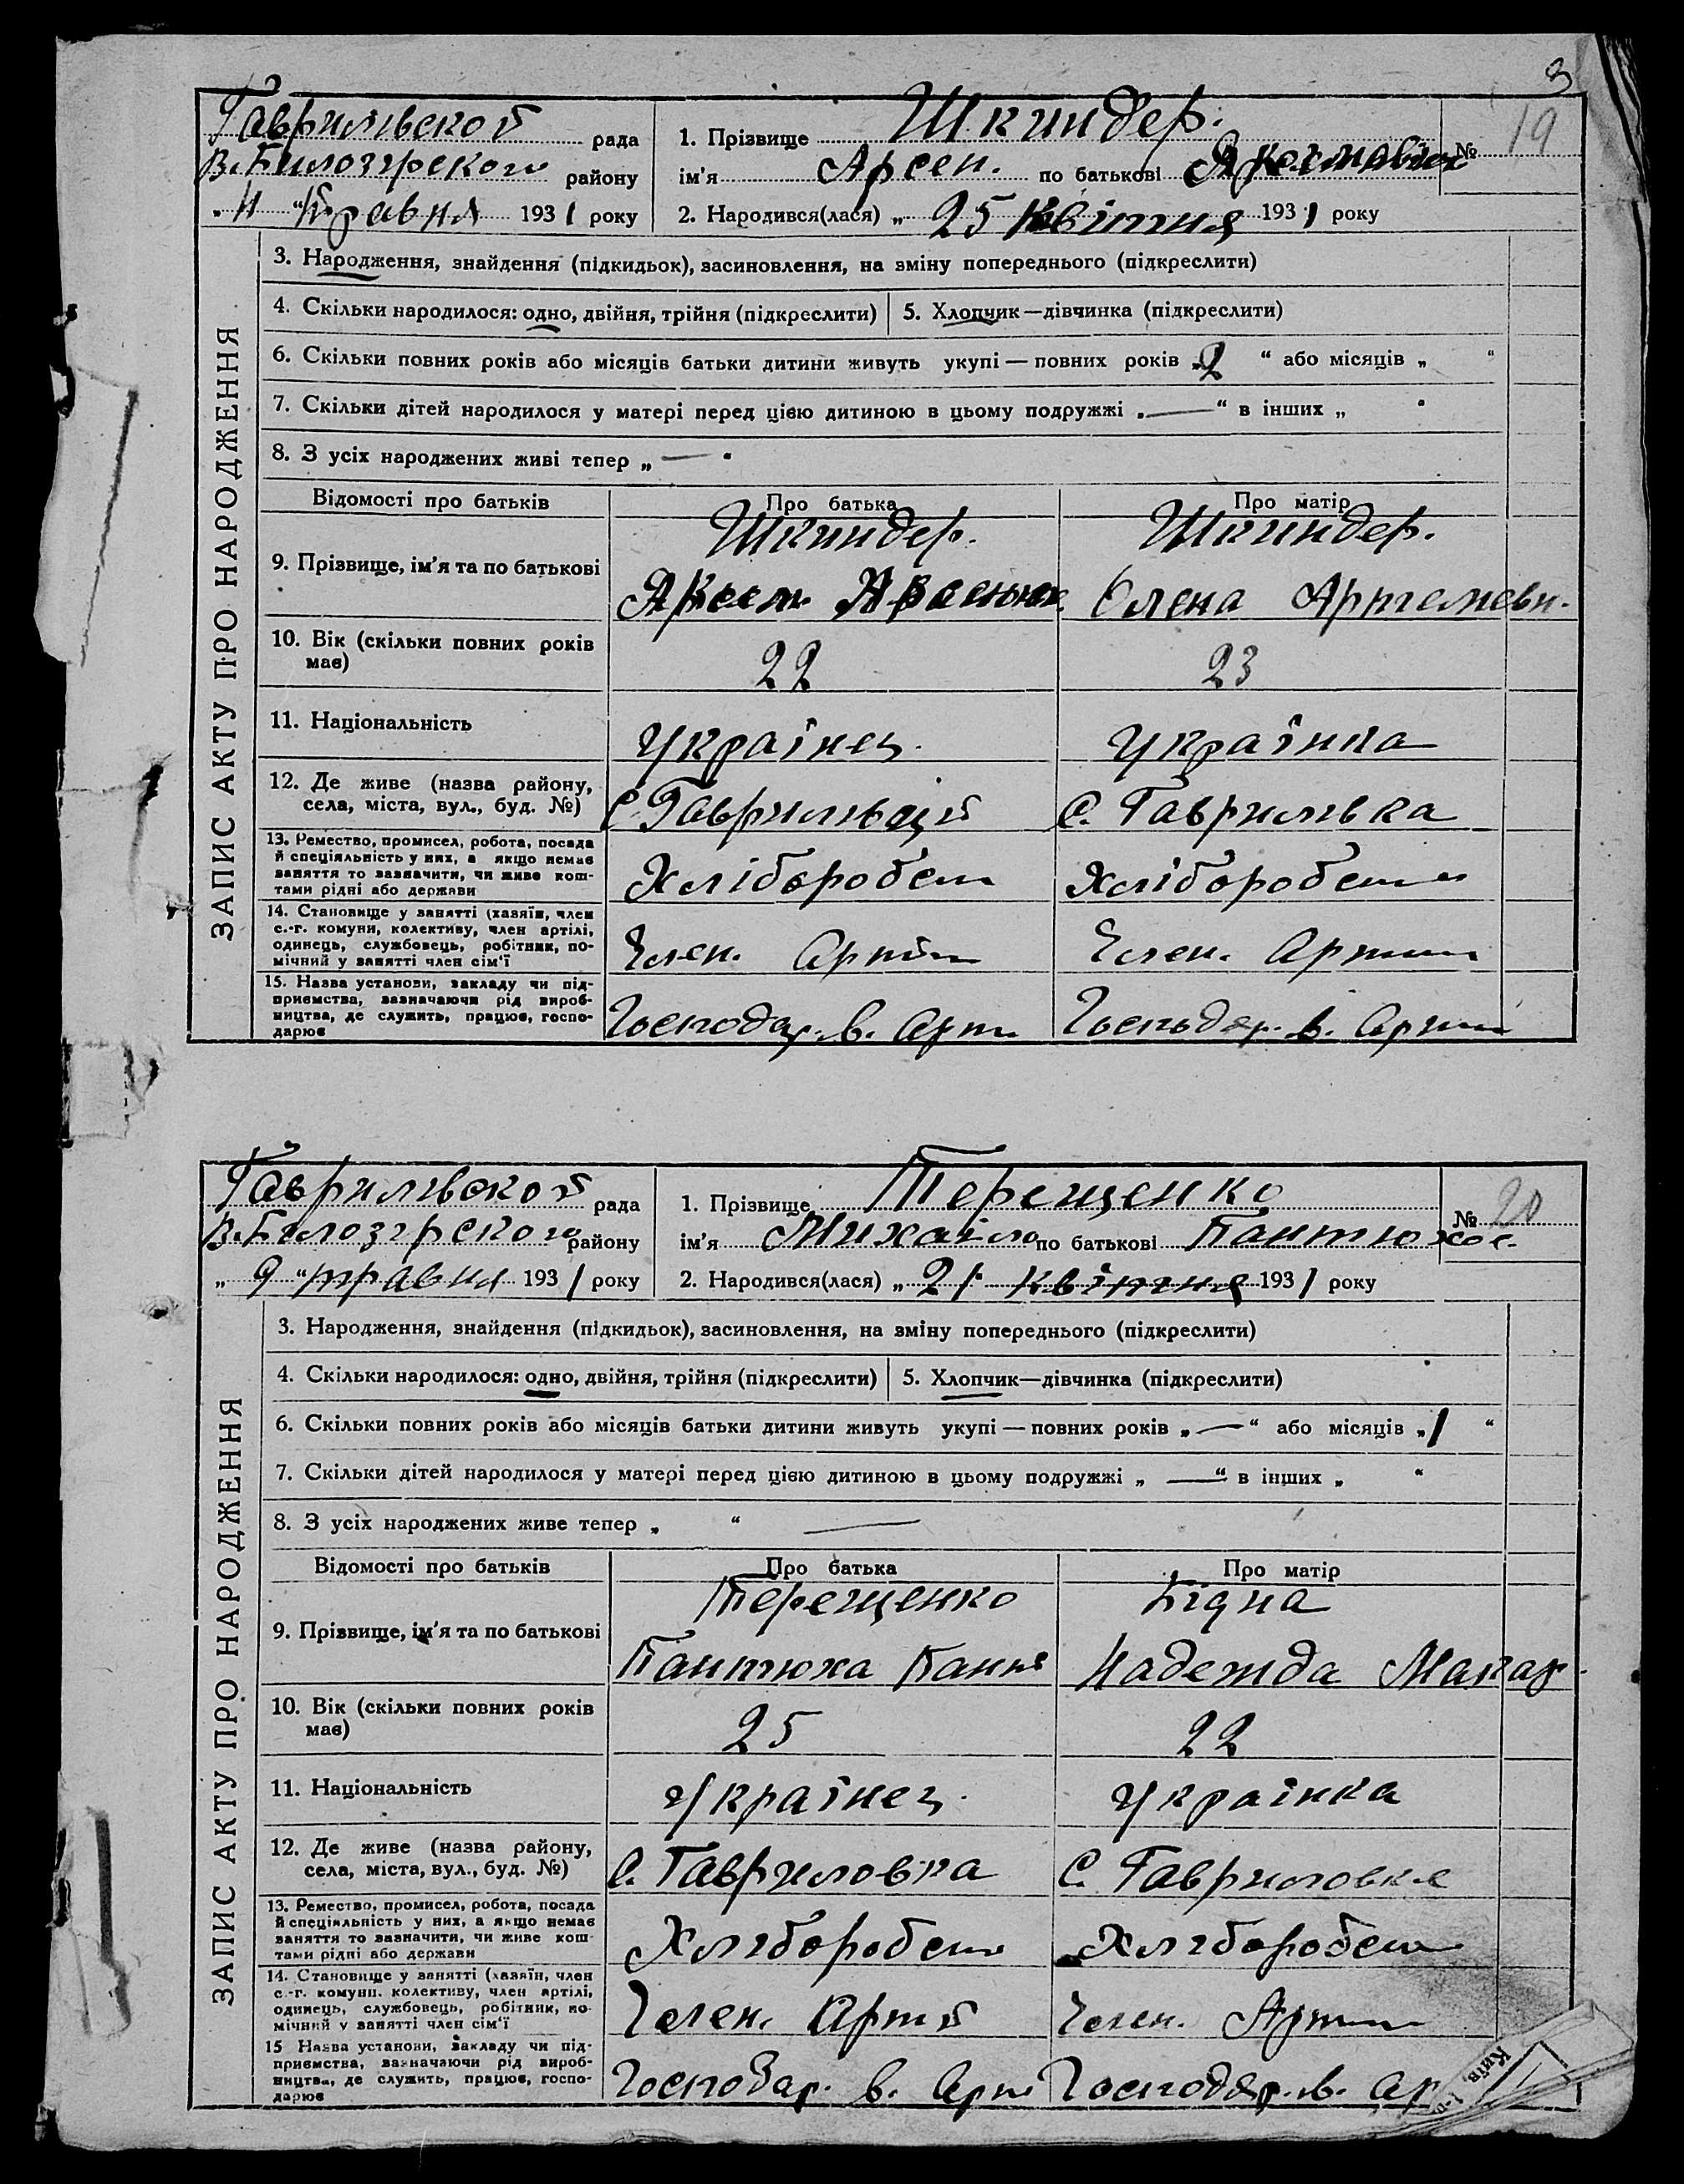 3
Гаврилівской рада
В. Билозірского району
" 11 " травня 1931 року
1. Прізвище Шкиндер.
ім'я Арсен. по батькові
№ 19
2. Народився(лася) „ 25 квітня 1931 року
ЗАПИС АКТУ ПРО НАРОДЖЕННЯ
3. Народження, знайдення (підкидьок), засиновлення, на зміну попереднього (підкреслити)
4. Скільки народилося: одно, двійня, трійня (підкреслити) 5. Хлопчик—дівчинка (підкреслити)
6. Скільки повних років або місяців батьки дитини живуть укупі — повних років „2 “ або місяців „ “
7. Скільки дітей народилося у матері перед цією дитиною в цьому подружжі „—“ в інших „ “
8. З усіх народжених живі тепер „ — “
Відомості про батьків Про батька Про матір
9. Прізвище, ім'я та по батькові
Шкиндер. Шкиндер.
Олена Артемевн.
10. Вік (скільки повних років має) 22 23
11. Національність Українец. Українка
12. Де живе (назва району, села, міста, вул., буд. №) С. С. Гаврилівка
13. Ремество, промисел, робота, посада
й спеціяльність у них, а якщо немає
заняття то зазначити, чи живе кош-
тами рідні або держави
Хлібороб Хлібороб
14. Становище у занятті (хазяїн, член
с.-г. комуни, колективу, член артілі,
одинець, службовець, робітник, по-
мічний у занятті член сім'ї
Член. Арт Член. Арт
15. Назва установи, закладу чи під-
приємства, зазначаючи рід вироб-
ництва, де служить, працює, госпо-
дарює
Господар. в. Арт Господар. в. Арт
Гаврилівской рада
В. Билозірского району
„ 9 “ травня 1931 року
1. Прізвище Терещенко
ім'я Михайло по батькові Пантюхов.
№ 20
2. Народився(лася) „ 21 квітня 1931 року
ЗАПИС АКТУ ПРО НАРОДЖЕННЯ
3. Народження, знайдення (підкидьок), засиновлення, на зміну попереднього (підкреслити)
4. Скільки народилося: одно, двійня, трійня (підкреслити) 5. Хлопчик—дівчинка (підкреслити)
6. Скільки повних років або місяців батьки дитини живуть укупі — повних років „ — “ або місяців „1 “
7. Скільки дітей народилося у матері перед цією дитиною в цьому подружжі „ —“ в інших „ “
8. З усіх народжених живе тепер „ “ —
Відомості про батьків Про батька Про матір
9. Прізвище, ім'я та по батькові
Терещенко Бідна
Пантюха Надежда Макар
10. Вік (скільки повних років має) 25 22
11. Національність Українец. Українка
12. Де живе (назва району, села, міста, вул., буд. №) С. Гавриловка С. Гавриловка
13. Ремество, промисел, робота, посада
й спеціяльність у них, а якщо немає
заняття то зазначити, чи живе кош-
тами рідні або держави
Хлібороб Хлібороб
14. Становище у занятті (хазяїн, член
с.-г. комуни, колективу, член артілі,
одинець, службовець, робітник, по-
мічний у занятті член сім'ї
Член. Арт Член. Арт
15 Назва установи, закладу чи під-
приємства, зазначаючи рід вироб-
ництва, де служить, працює, госпо-
дарює
Господар. в. Арт Господар. в. Ар
Київ, 1-о